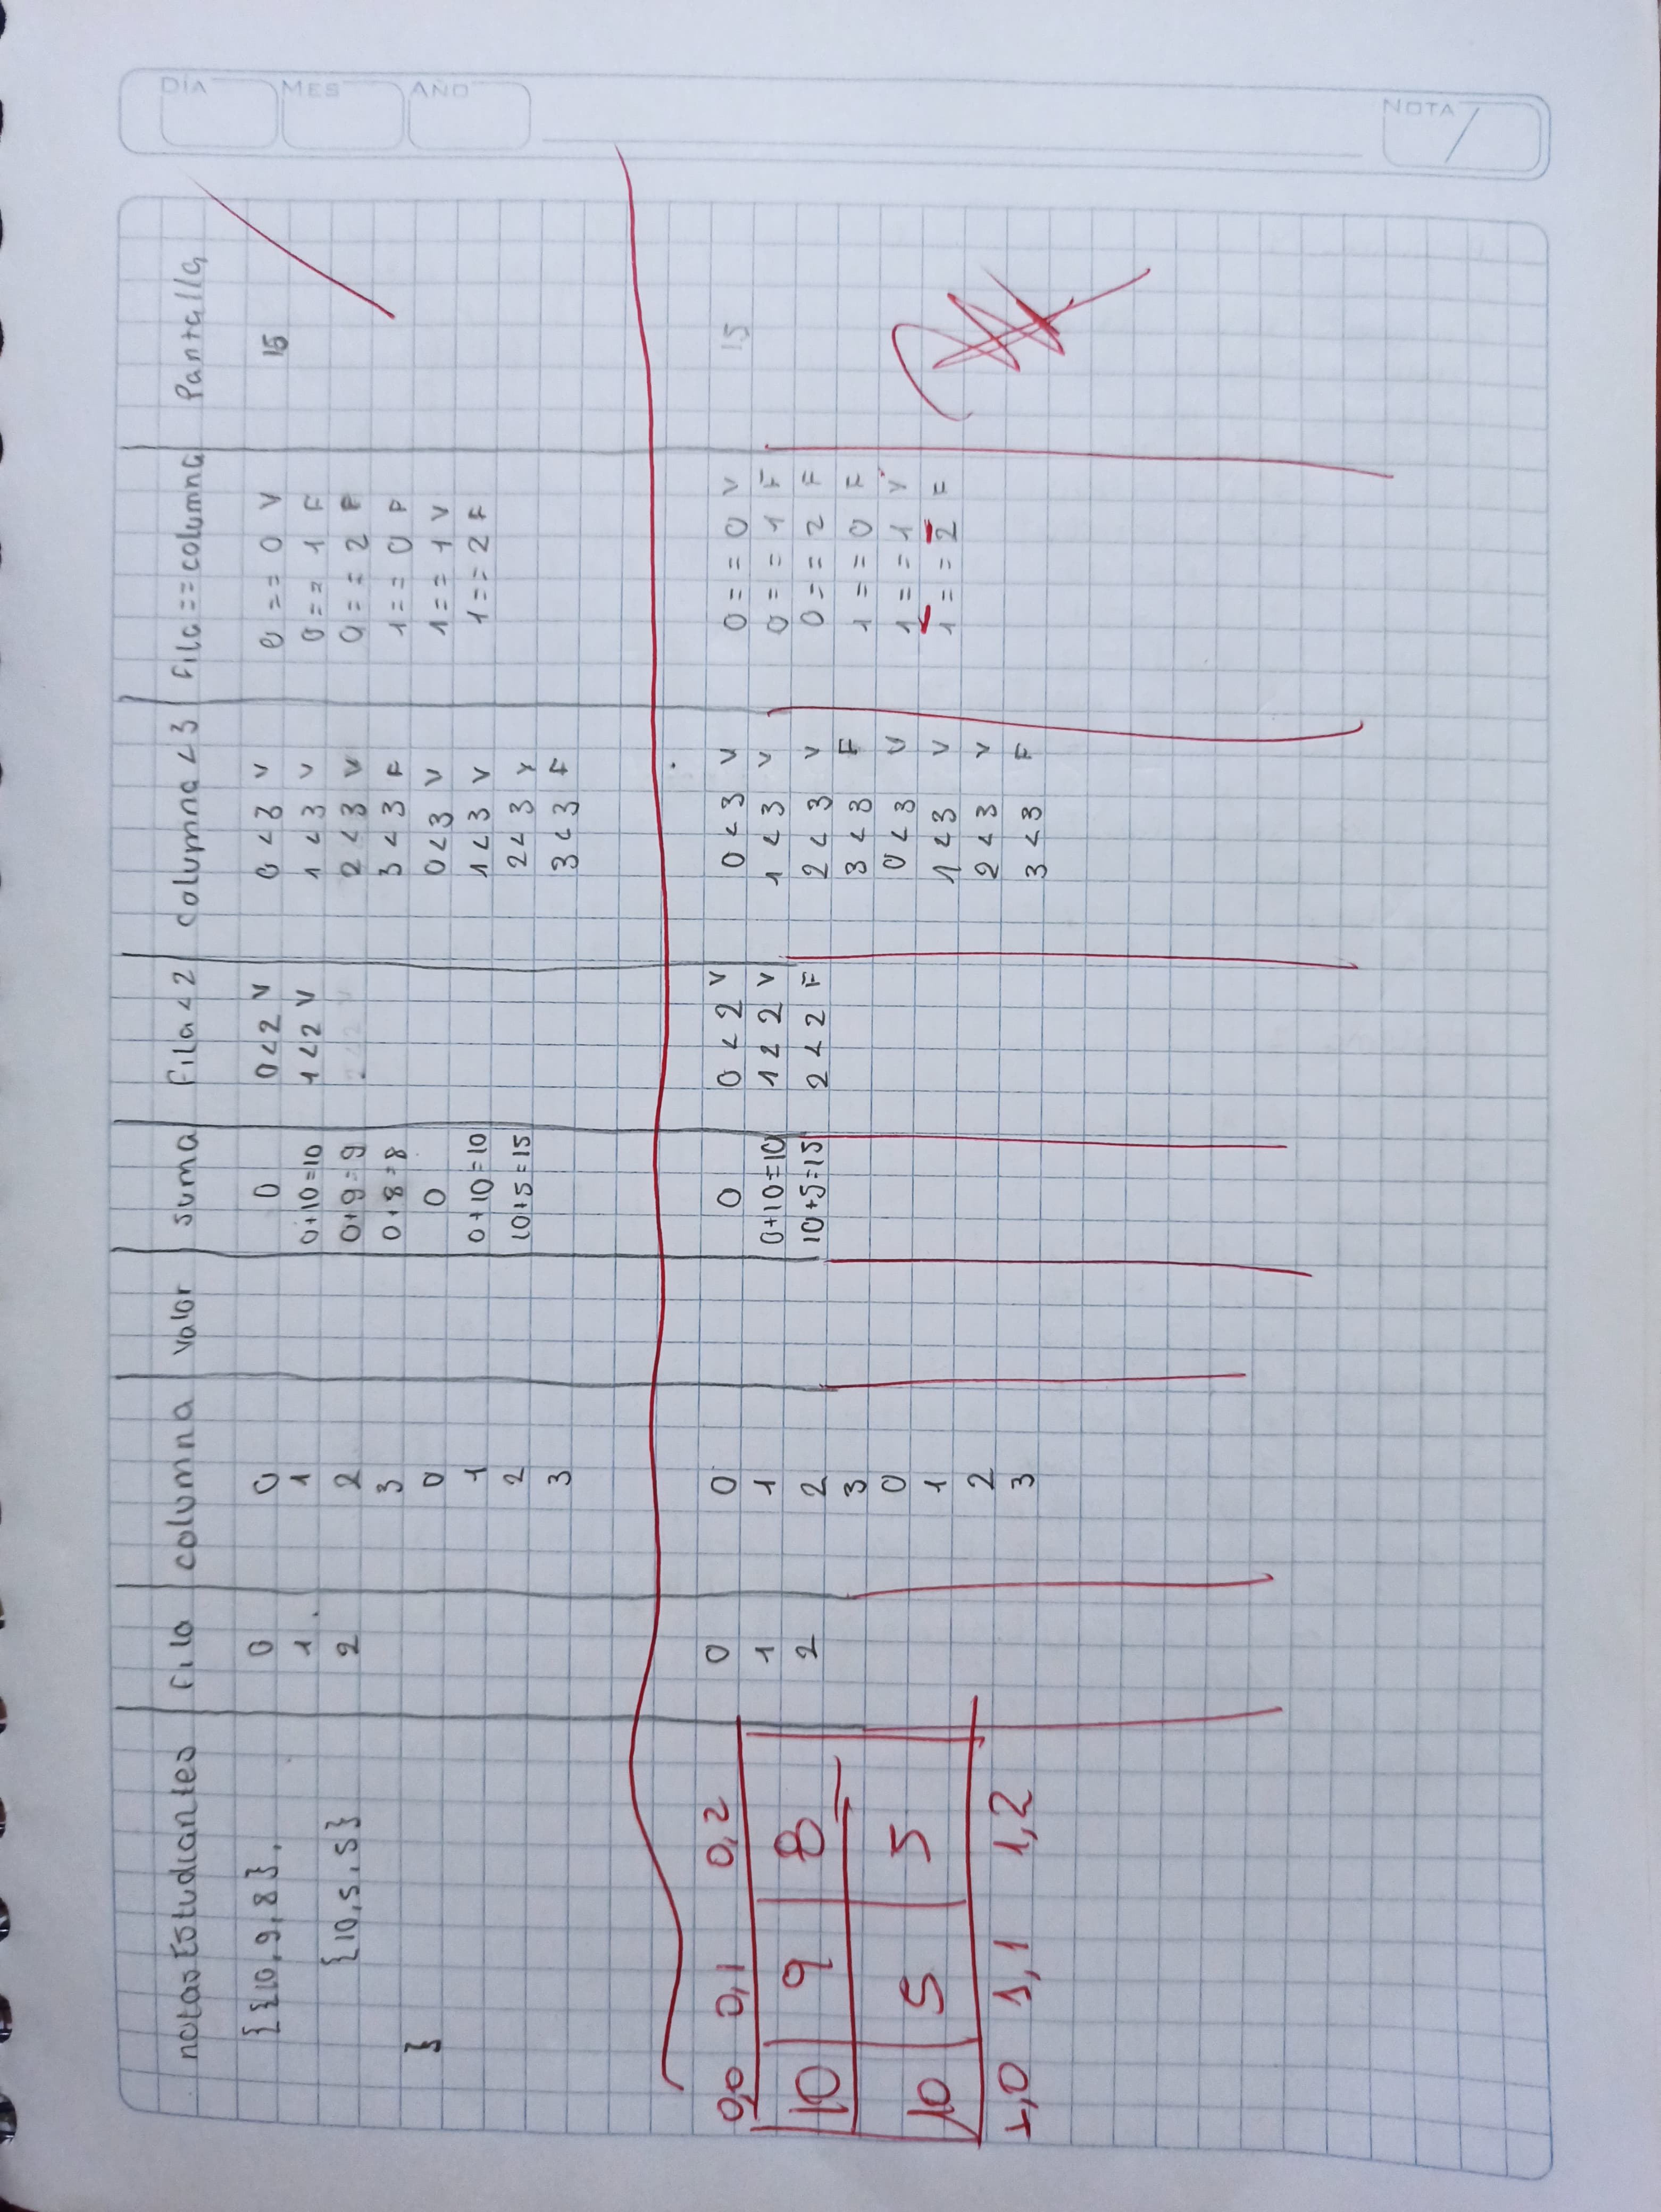 DÍA MES AÑO NOTA
notasEstudiantes Fila columna valor suma Fila<2 columna<3 Fila==columna Pantalla
{{10,9,8}, 0 0 0 0<2 V 0<3 V 0==0 V 15
1 1 0+10=10 1<2 V 1<3 V 0==1 F
{10,5,5} 2 2 0+9=9 2<3 V 0==2 F
3 0+8=8 3<3 F 1==0 F
} 0 0 0<3 V 1==1 V
1 0+10=10 1<3 V 1==2 F
2 10+5=15 2<3 V
3 3<3 F
0,0 0,1 0,2 0 0 0 0<2 V 0<3 V 0==0 V 15
10 9 8 1 1 0+10=10 1<2 V 1<3 V 0==1 F
2 2 10+5=15 2<2 F 2<3 V 0==2 F
3 3<3 F 1==0 F
10 5 5 0 0<3 V 1==1 V
1 1<3 V 1==2 F
2 2<3 V
1,0 1,1 1,2 3 3<3 F